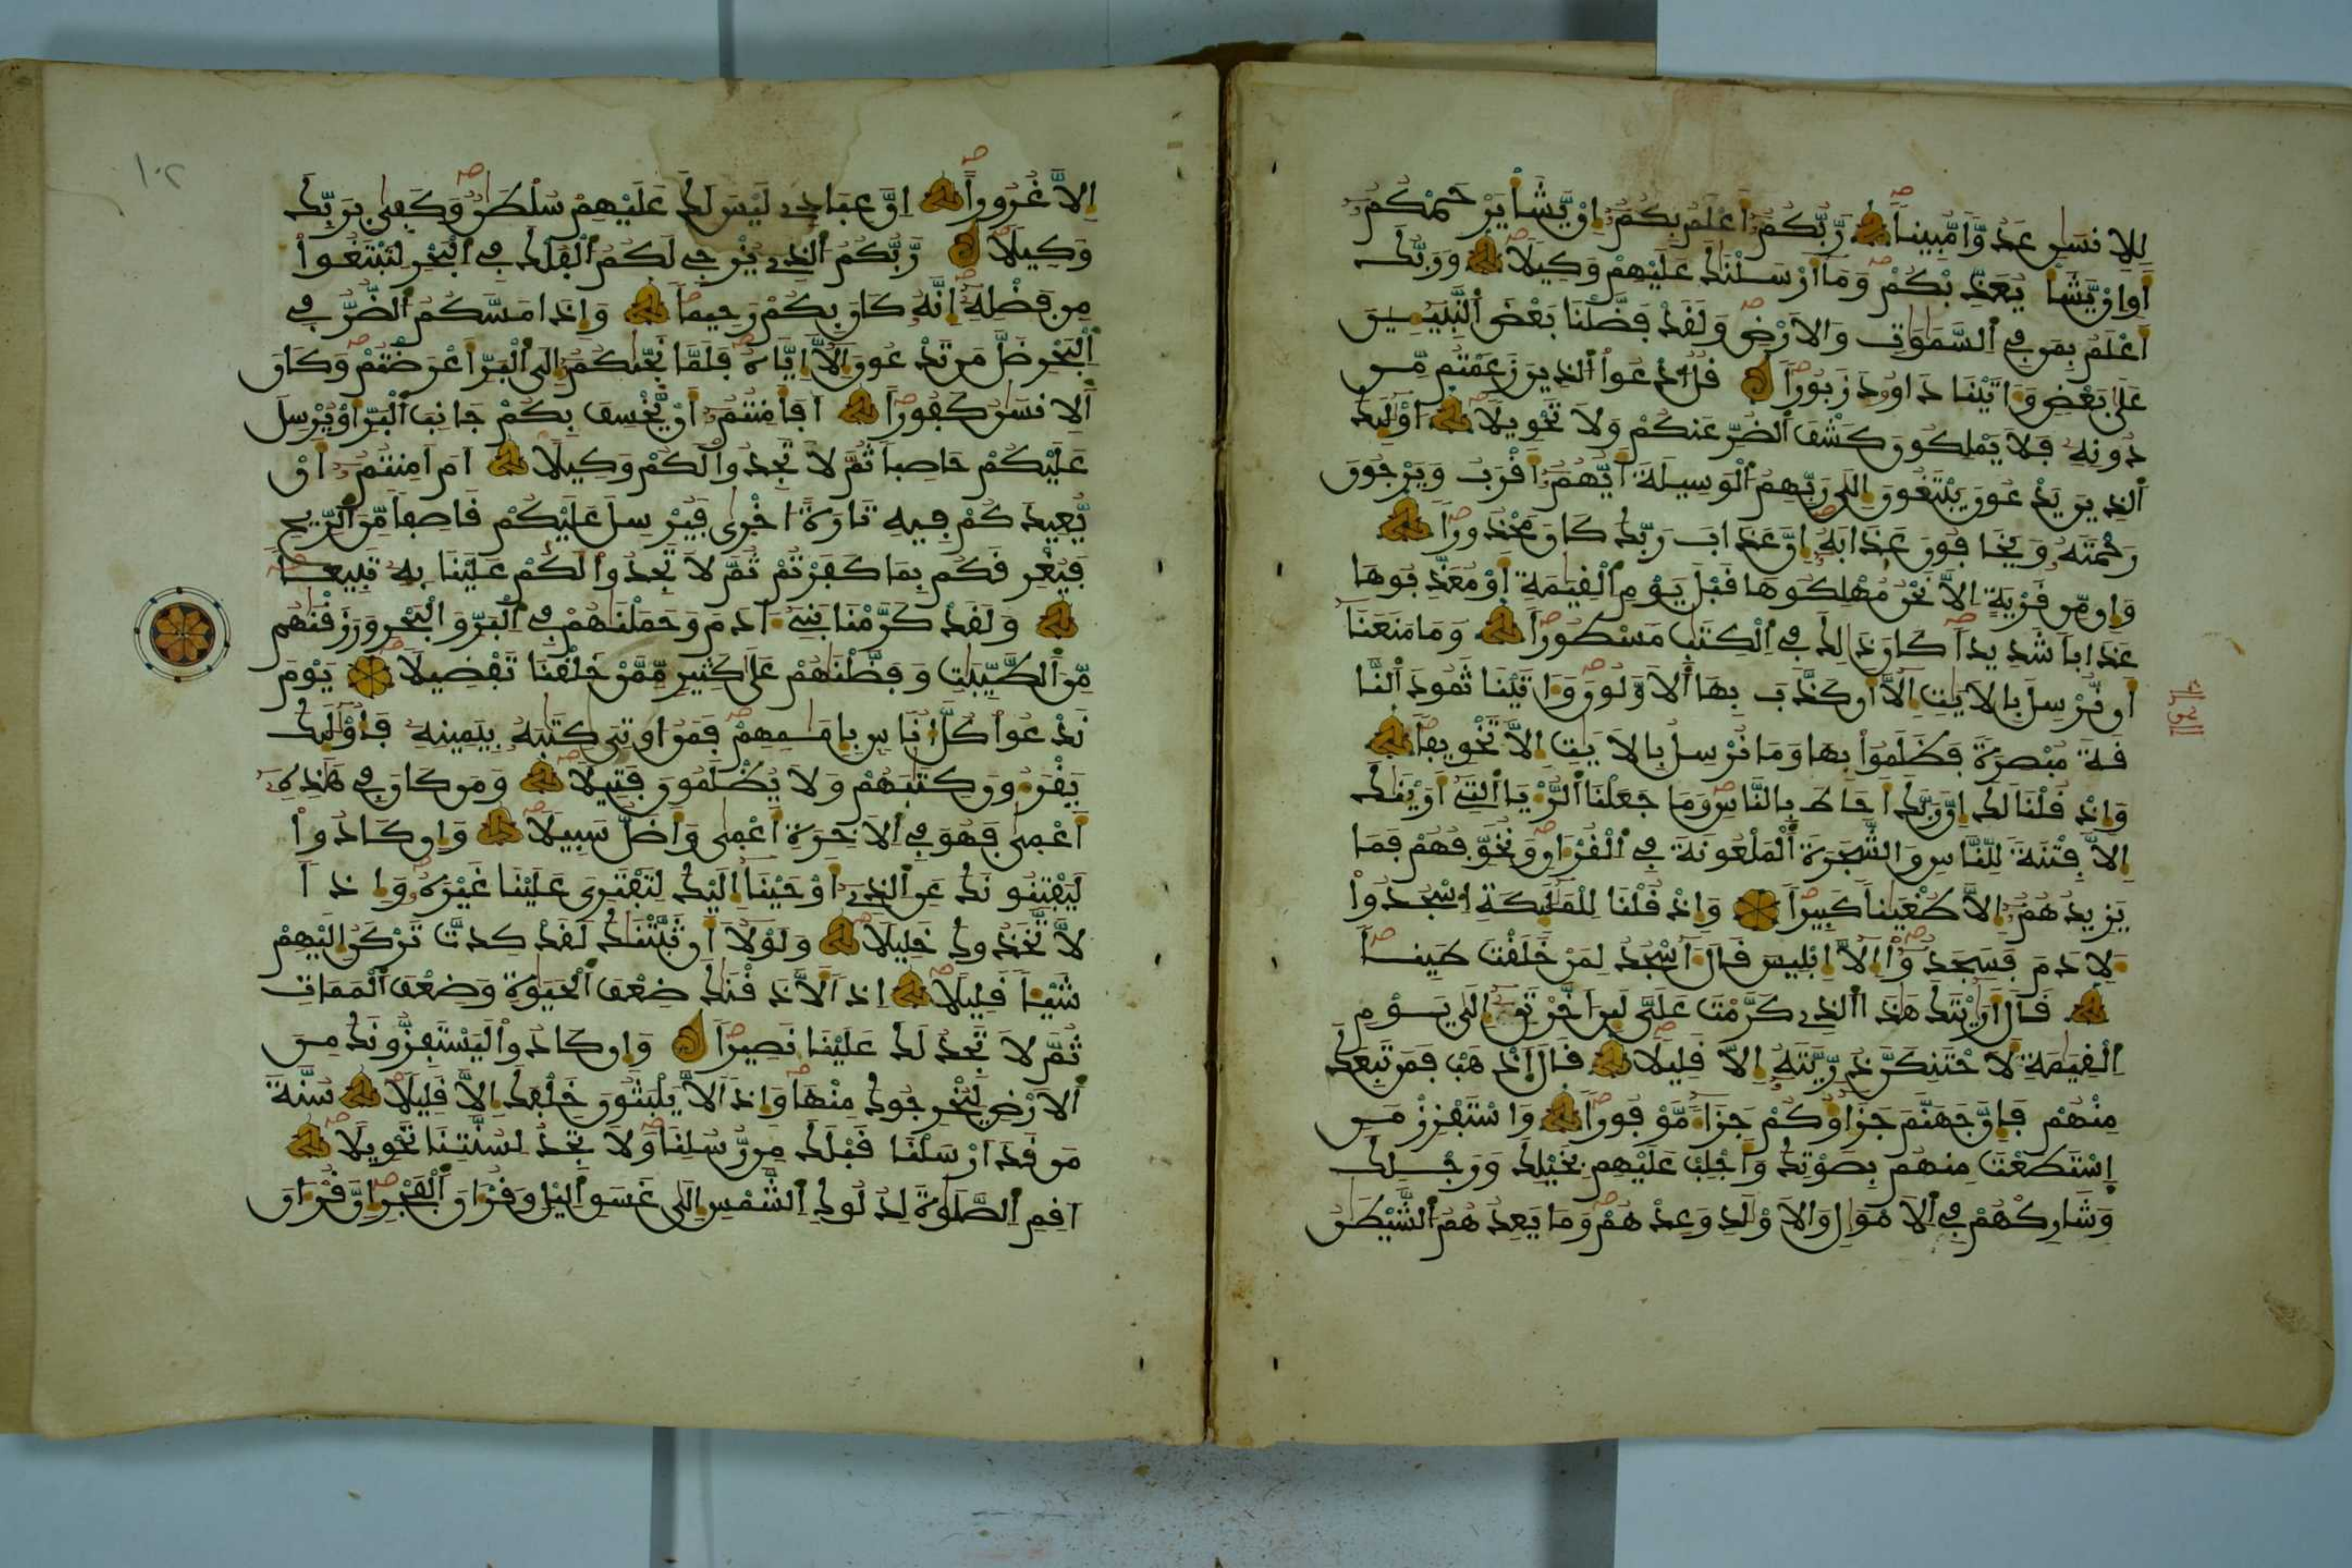 للانسن عدوا مبينا ربكم اعلم بكم ان يشا يرحمكم
او ان يشا يعذبكم وما ارسلنك عليهم وكيلا وربك
اعلم بمن في السموت والارض ولقد فضلنا بعض النبيين
على بعض واتينا داوود زبورا قل ادعوا الذين زعمتم من
دونه فلا يملكون كشف الضر عنكم ولا تحويلا اولئك
الذين يدعون يبتغون الى ربهم الوسيلة ايهم اقرب ويرجون
رحمته ويخافون عذابه ان عذاب ربك كان محذورا
وان من قرية الا نحن مهلكوها قبل يوم القيمة او معذبوها
عذابا شديدا كان ذلك في الكتب مسطورا وما منعنا
ان نرسل بالايت الا ان كذب بها الاولون واتينا ثمود النا
قة مبصرة فظلموا بها وما نرسل بالايت الا تخويفا
واذ قلنا لك ان ربك احاط بالناس وما جعلنا الريا التي ارينك
الا فتنة للناس والشجرة الملعونة في القران ونخوفهم فما
يزيدهم الا طغينا كبيرا واذ قلنا للملئكة اسجدوا
لادم فسجدوا الا ابليس قال ااسجد لمن خلقت طينا
قال اريتك هذا الذي كرمت علي لين اخرتن الى يوم
القيمة لاحتنكن ذريته الا قليلا قال اذهب فمن تبعك
منهم فان جهنم جزاوكم جزا موفورا واستفزز من
استطعت منهم بصوتك واجلب عليهم بخيلك ورجلك
وشاركهم في الامول والاولد وعدهم وما يعدهم الشيطن
١٠٢
الا غرورا ان عبادي ليس لك عليهم سلطن وكفى بربك
وكيلا ربكم الذي يزجي لكم الفلك في البحر لتبتغوا
من فضله انه كان بكم رحيما واذا مسكم الضر في
البحر ضل من تدعون الا اياه فلما نجىكم الى البر اعرضتم وكان
الانسن كفورا افامنتم ان يخسف بكم جانب البر او يرسل
عليكم حاصبا ثم لا تجدوا لكم وكيلا ام امنتم ان
يعيدكم فيه تارة اخرى فيرسل عليكم قاصفا من الريح
فيغرقكم بما كفرتم ثم لا تجدوا لكم علينا به تبيعا
ولقد كرمنا بني ادم وحملنهم في البر والبحر ورزقنهم
من الطيبت وفضلنهم على كثير ممن خلقنا تفضيلا يوم
ندعوا كل اناس بامـمهم فمن اوتي كتبه بيمينه فاولئك
يقرون كتبهم ولا يظلمون فتيلا ومن كان في هذه
اعمى فهو في الاخرة اعمى واضل سبيلا وان كادوا
ليفتنونك عن الذي اوحينا اليك لتفتري علينا غيره واذا
لاتخذوك خليلا ولولا ان ثبتنك لقد كدت تركن اليهم
شيا قليلا اذا لاذقنك ضعف الحيوة وضعف الممات
ثم لا تجد لك علينا نصيرا وان كادوا ليستفزونك من
الارض ليخرجوك منها واذا لا يلبثون خلفك الا قليلا سنة
من قد ارسلنا قبلك من رسلنا ولا تجد لسنتنا تحويلا
اقم الصلوة لدلوك الشمس الى غسق اليل وقران الفجر ان قران